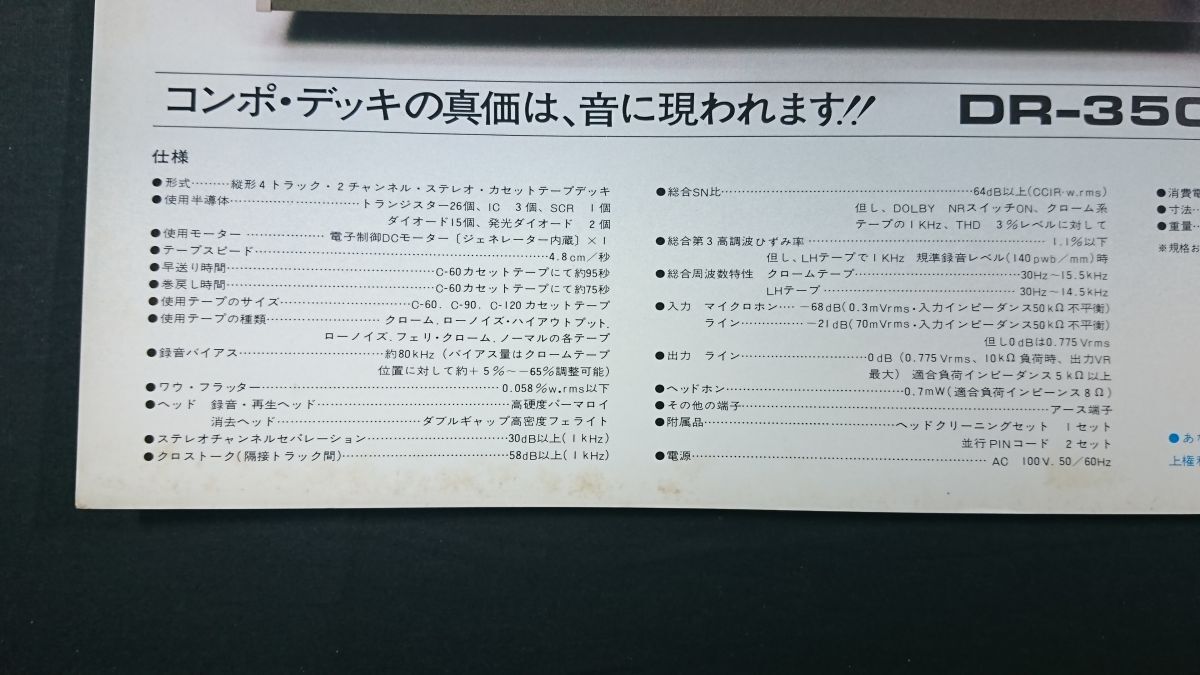 コンポ・デッキの真価は、音に現われます!!
DR-350
仕様
●形式………縦形4トラック・2チャンネル・ステレオ・カセットテープデッキ
●使用半導体……………………トランジスター26個、IC 3個、SCR 1個
ダイオード15個、発光ダイオード 2個
●使用モーター……………電子制御DCモーター〔ジェネレーター内蔵〕×1
●テープスピード……………………………………………………4.8cm/秒
●早送り時間……………………………C-60カセットテープにて約95秒
●巻戻し時間……………………………C-60カセットテープにて約75秒
●使用テープのサイズ…………………C-60．C-90．C-120カセットテープ
●使用テープの種類………………クローム．ローノイズ・ハイアウトプット．
ローノイズ．フェリ・クローム．ノーマルの各テープ
●録音バイアス……………………約80kHz（バイアス量はクロームテープ
位置に対して約＋5％～－65％調整可能）
●ワウ・フラッター…………………………………………0.058％w.rms以下
●ヘッド 録音・再生ヘッド…………………………………高硬度パーマロイ
消去ヘッド………………………ダブルギャップ高密度フェライト
●ステレオチャンネルセパレーション……………………30dB以上(1kHz)
●クロストーク(隔接トラック間)…………………………58dB以上(1kHz)
●総合SN比……………………………………………64dB以上(CCIR·w.rms)
但し、DOLBY NRスイッチON、クローム系
テープの1KHz、THD 3％レベルに対して
●総合第3高調波ひずみ率……………………………………1.1％以下
但し、LHテープで1KHz 規準録音レベル(140pwb/mm)時
●総合周波数特性 クロームテープ……………………………30Hz～15.5kHz
LHテープ………………………………30Hz～14.5kHz
●入力 マイクロホン…－68dB(0.3mVrms・入力インピーダンス50kΩ不平衡)
ライン……………－21dB(70mVrms・入力インピーダンス50kΩ不平衡)
但し0dBは0.775Vrms
●出力 ライン………………………0dB（0.775Vrms、10kΩ負荷時、出力VR
最大） 適合負荷インピーダンス5kΩ以上
●ヘッドホン…………………………………0.7mW(適合負荷インピーンス8Ω)
●その他の端子……………………………………………………アース端子
●附属品……………………………………ヘッドクリーニングセット 1セット
並行PINコード 2セット
●電源……………………………………………………AC 100V．50/60Hz
●消費電
●寸法…
●重量…
※規格お
●あな
上権利